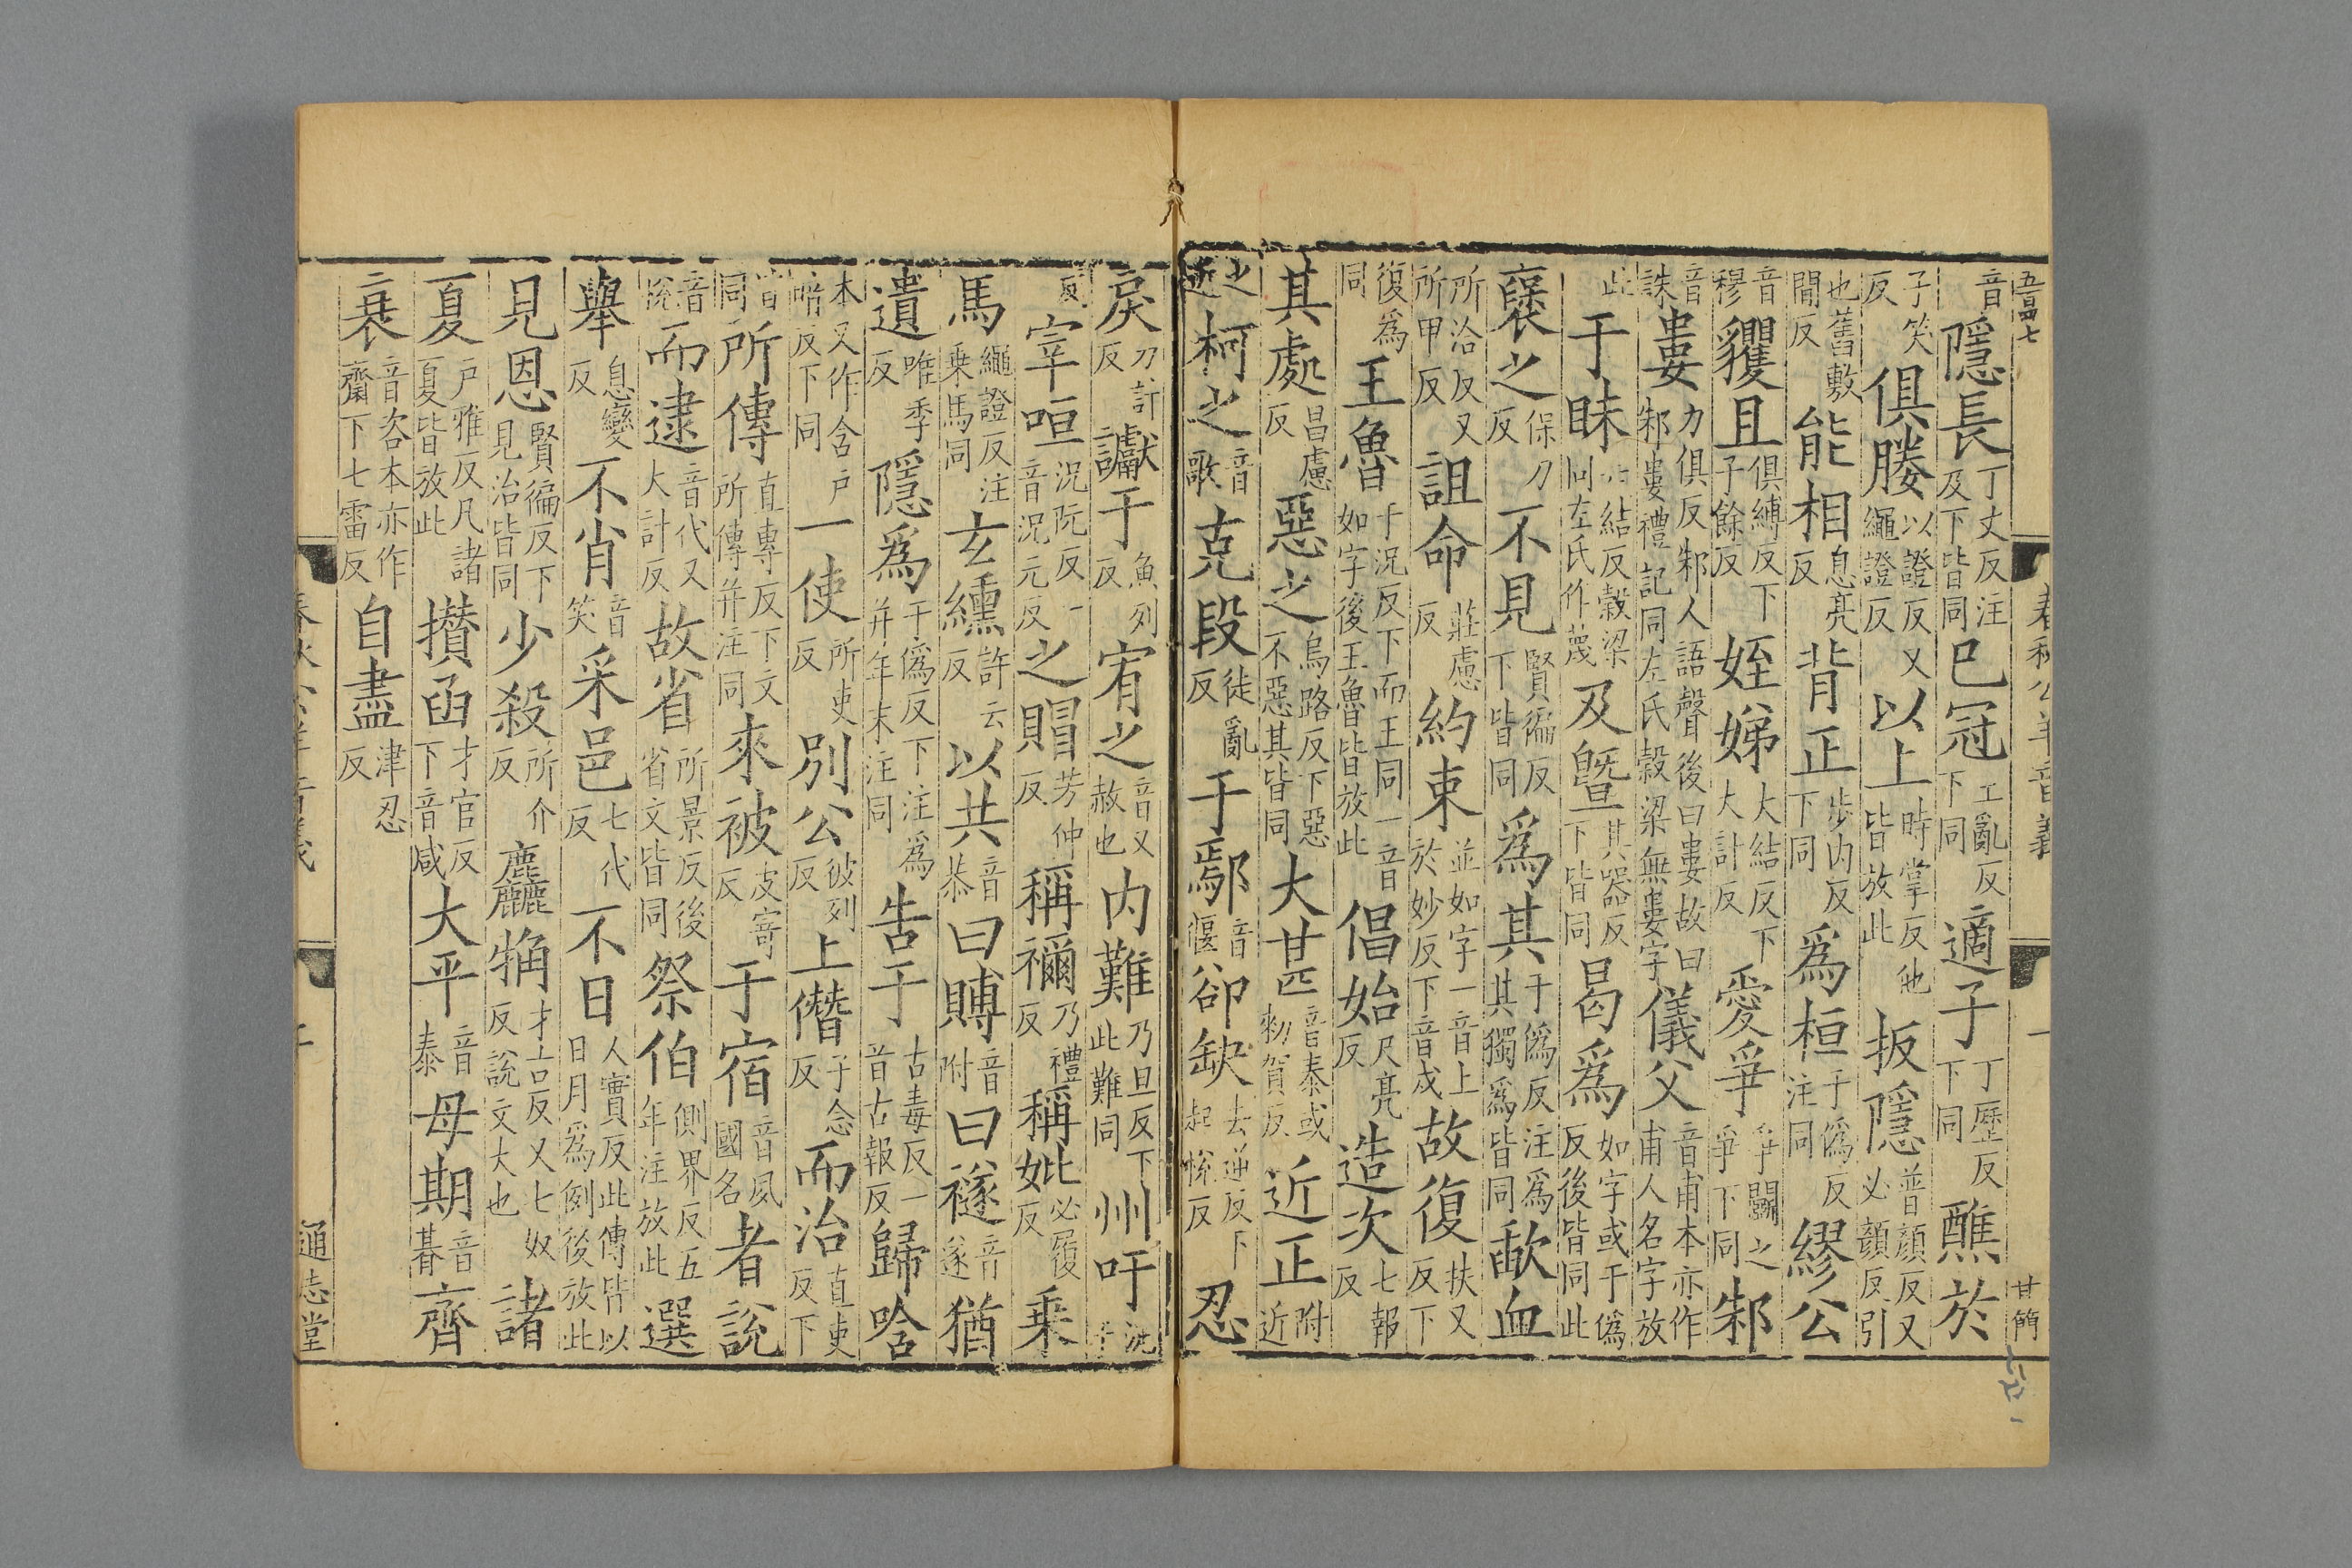 五百四七 春秋公羊音義 一 甘簡
音隱長丁丈反注及下皆同已冠工亂反下同適子丁歷反下同醮於
子笑反俱媵以證反又繩證反以上時掌反他皆放此扳隱普顔反又必顔反引
也舊敷閒反能相息亮反背正步内反下同爲桓于僞反注同繆公
音穆貜且俱縛反下子餘反姪娣大結反下大計反愛爭爭鬭之爭下同邾
婁力俱反邾人語聲後曰婁故曰邾婁禮記同左氏穀梁無婁字儀父音甫本亦作甫人名字放
此于眛亡結反穀梁同左氏作蔑及曁其器反下皆同曷爲如字或于僞反後皆同此
襃之保刀反不見賢徧反下皆同爲其于僞反注爲其獨爲皆同歃血
所洽反又所甲反詛命莊慮反約束並如字一音上於妙反下音戍故復扶又反下
復爲同王魯于況反下而王同一音如字後王魯皆放此倡始尺亮反造次七報反
其處昌慮反惡之烏路反下惡不惡其皆同大甚音泰或勑賀反近正附近
之近柯之音歌克段徒亂反于鄢音偃郤缺去逆反下起悅反忍
戾力計反讞于魚列反宥之音又赦也内難乃旦反下此難同州吁況于
反宰咺況阮反一音況元反之賵芳仲反稱禰乃禮反稱妣必履反乗
馬繩證反注乗馬同玄纁許云反以共音恭曰賻音附曰襚音遂猶
遺唯季反隱爲于僞反下注爲并年末注同告于古毒反一音古報反歸唅
本又作含戶暗反下同一使所吏反別公彼列反上僭子念反而治直吏反下
皆同所傳直專反下文所傳并注同來被皮寄反于宿音夙國名者說
音悅而逮音代又大計反故省所景反後省文皆同祭伯側界反五年注放此選
舉息變反不肖音笑采邑七代反不日人實反此傳皆以日月爲例後放此
見恩賢徧反下見治皆同少殺所介反麤觕才古反又七奴反說文大也諸
夏戶雅反凡諸夏皆放此攅函才官反下音咸大平音泰母期音朞齊
衰音咨本亦作齎下七雷反自盡津忍反
春秋公羊音義 通志堂